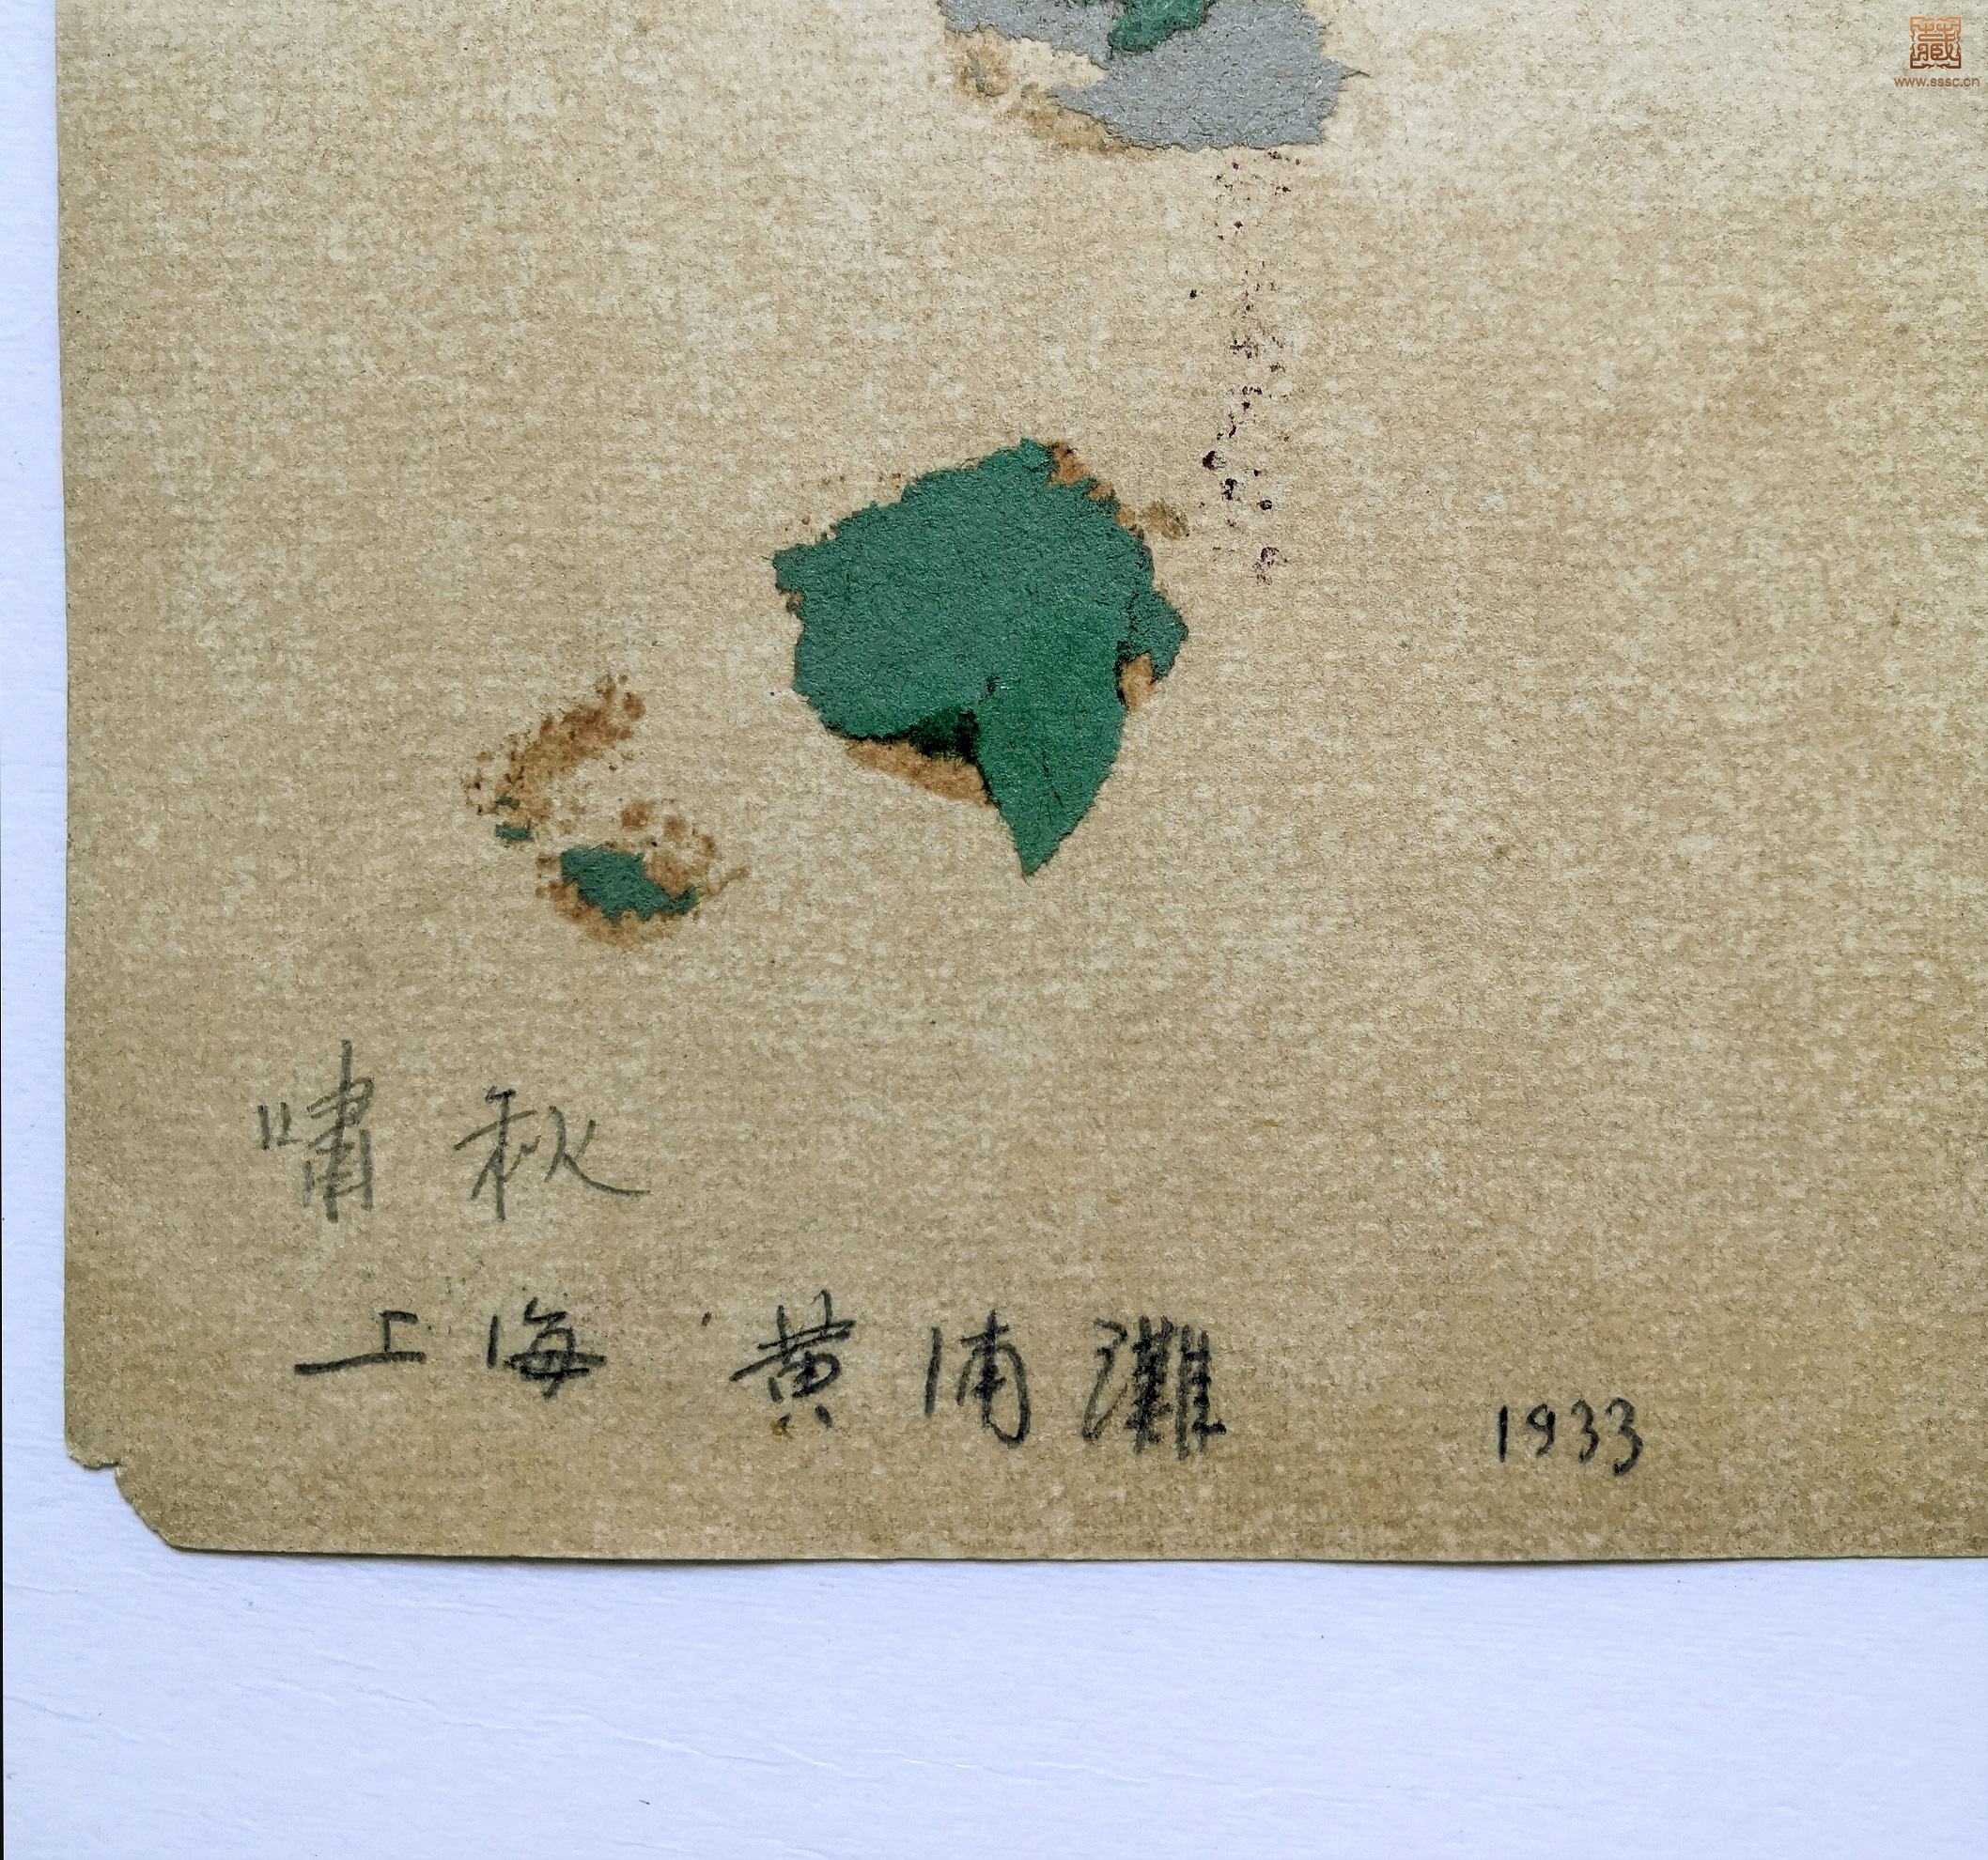 藏
www.sssc.cn
嘯秋
上海 黄浦灘 1933